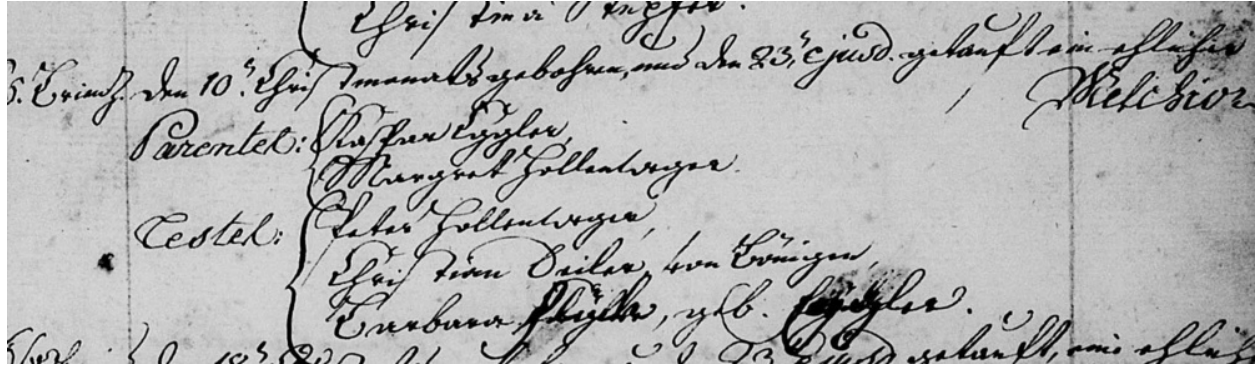 Christina
B. Brienz. den 10.ⁿ Christmonats gebohren, und den 23.ⁿ ejusd. getauft ein ehlicher
Melchior
Parentes: Kaspar Eggler,
Margret Hollenweger.
Testes: Peter Hollenweger,
Christian Seiler, von Bönigen,
Barbara geb. Eggler.
18.ⁿ 23.ⁿ ejusd getauft, ein ehlich